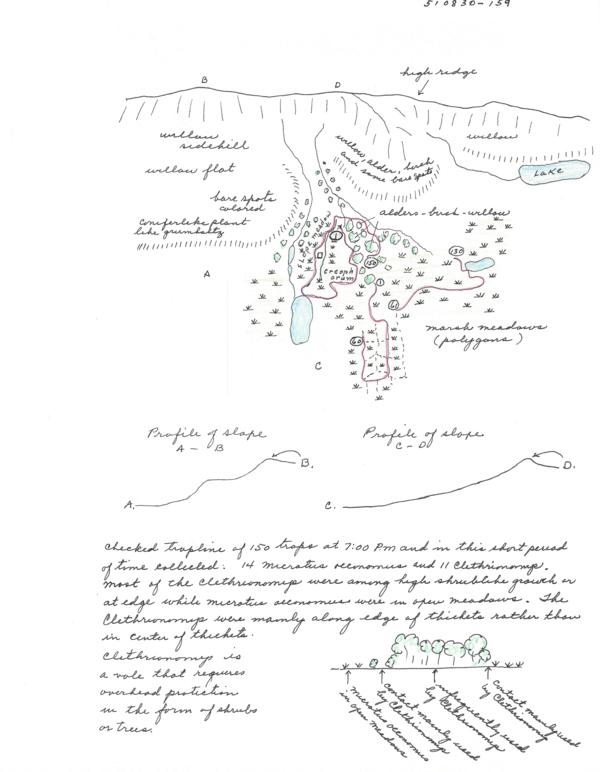 510830-159
B
D
high ridge
willow
sidehill
willow flat
willow, alder, birch
and some bare spots
willow
Lake
bare spots
colored
coniferlike plant
like grumholtz
alders-birch-willow
slope meadow
1
150
130
A
erioph
orum
1
61
60
marsh meadows
(polygons)
C
Profile of slope
A - B
Profile of slope
C - D
B.
D.
A.
C.
Checked trapline of 150 traps at 7:00 Pm and in this short period
of time collected: 14 Microtus oeconomus and 11 Clethrionomys.
most of the Clethrionomys were among high shrublike growth or
at edge while microtus oeconomus were in open meadows. The
Clethrionomys were mainly along edge of thickets rather than
in center of thickets.
Clethrionomys is
a vole that requires
overhead protection
in the form of shrubs
or trees.
microtus oeconomus
in open meadow
contact mainly used
by Clethrionomys
infrequently used
by Clethrionomys
contact mainly used
by Clethrionomys